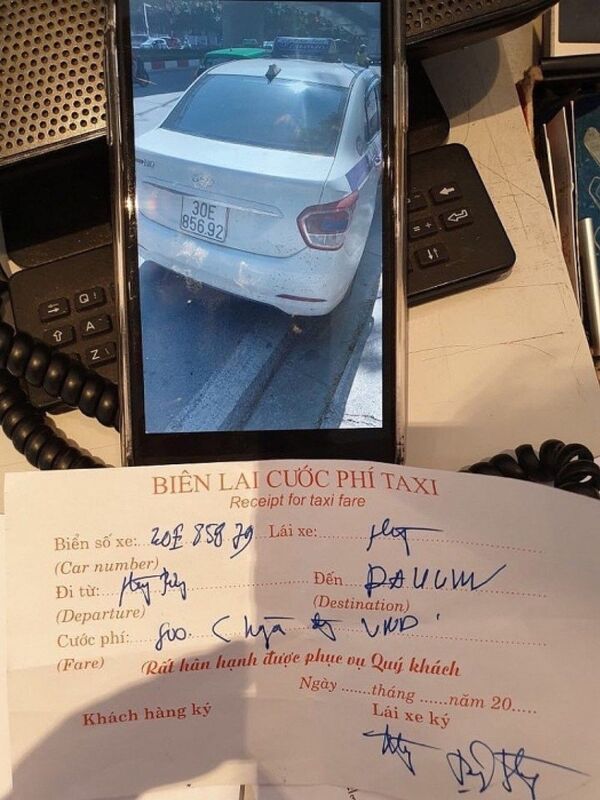 30E
856.92
Q!
A
Z
BIÊN LAI CƯỚC PHÍ TAXI
Receipt for taxi fare
Biển số xe: 30E 858 79 Lái xe:
(Car number)
Đi từ: Đến
(Departure) (Destination)
Cước phí: 800. VND
(Fare) Rất hân hạnh được phục vụ Quý khách
Ngày .......tháng ......năm 20.....
Khách hàng ký Lái xe ký